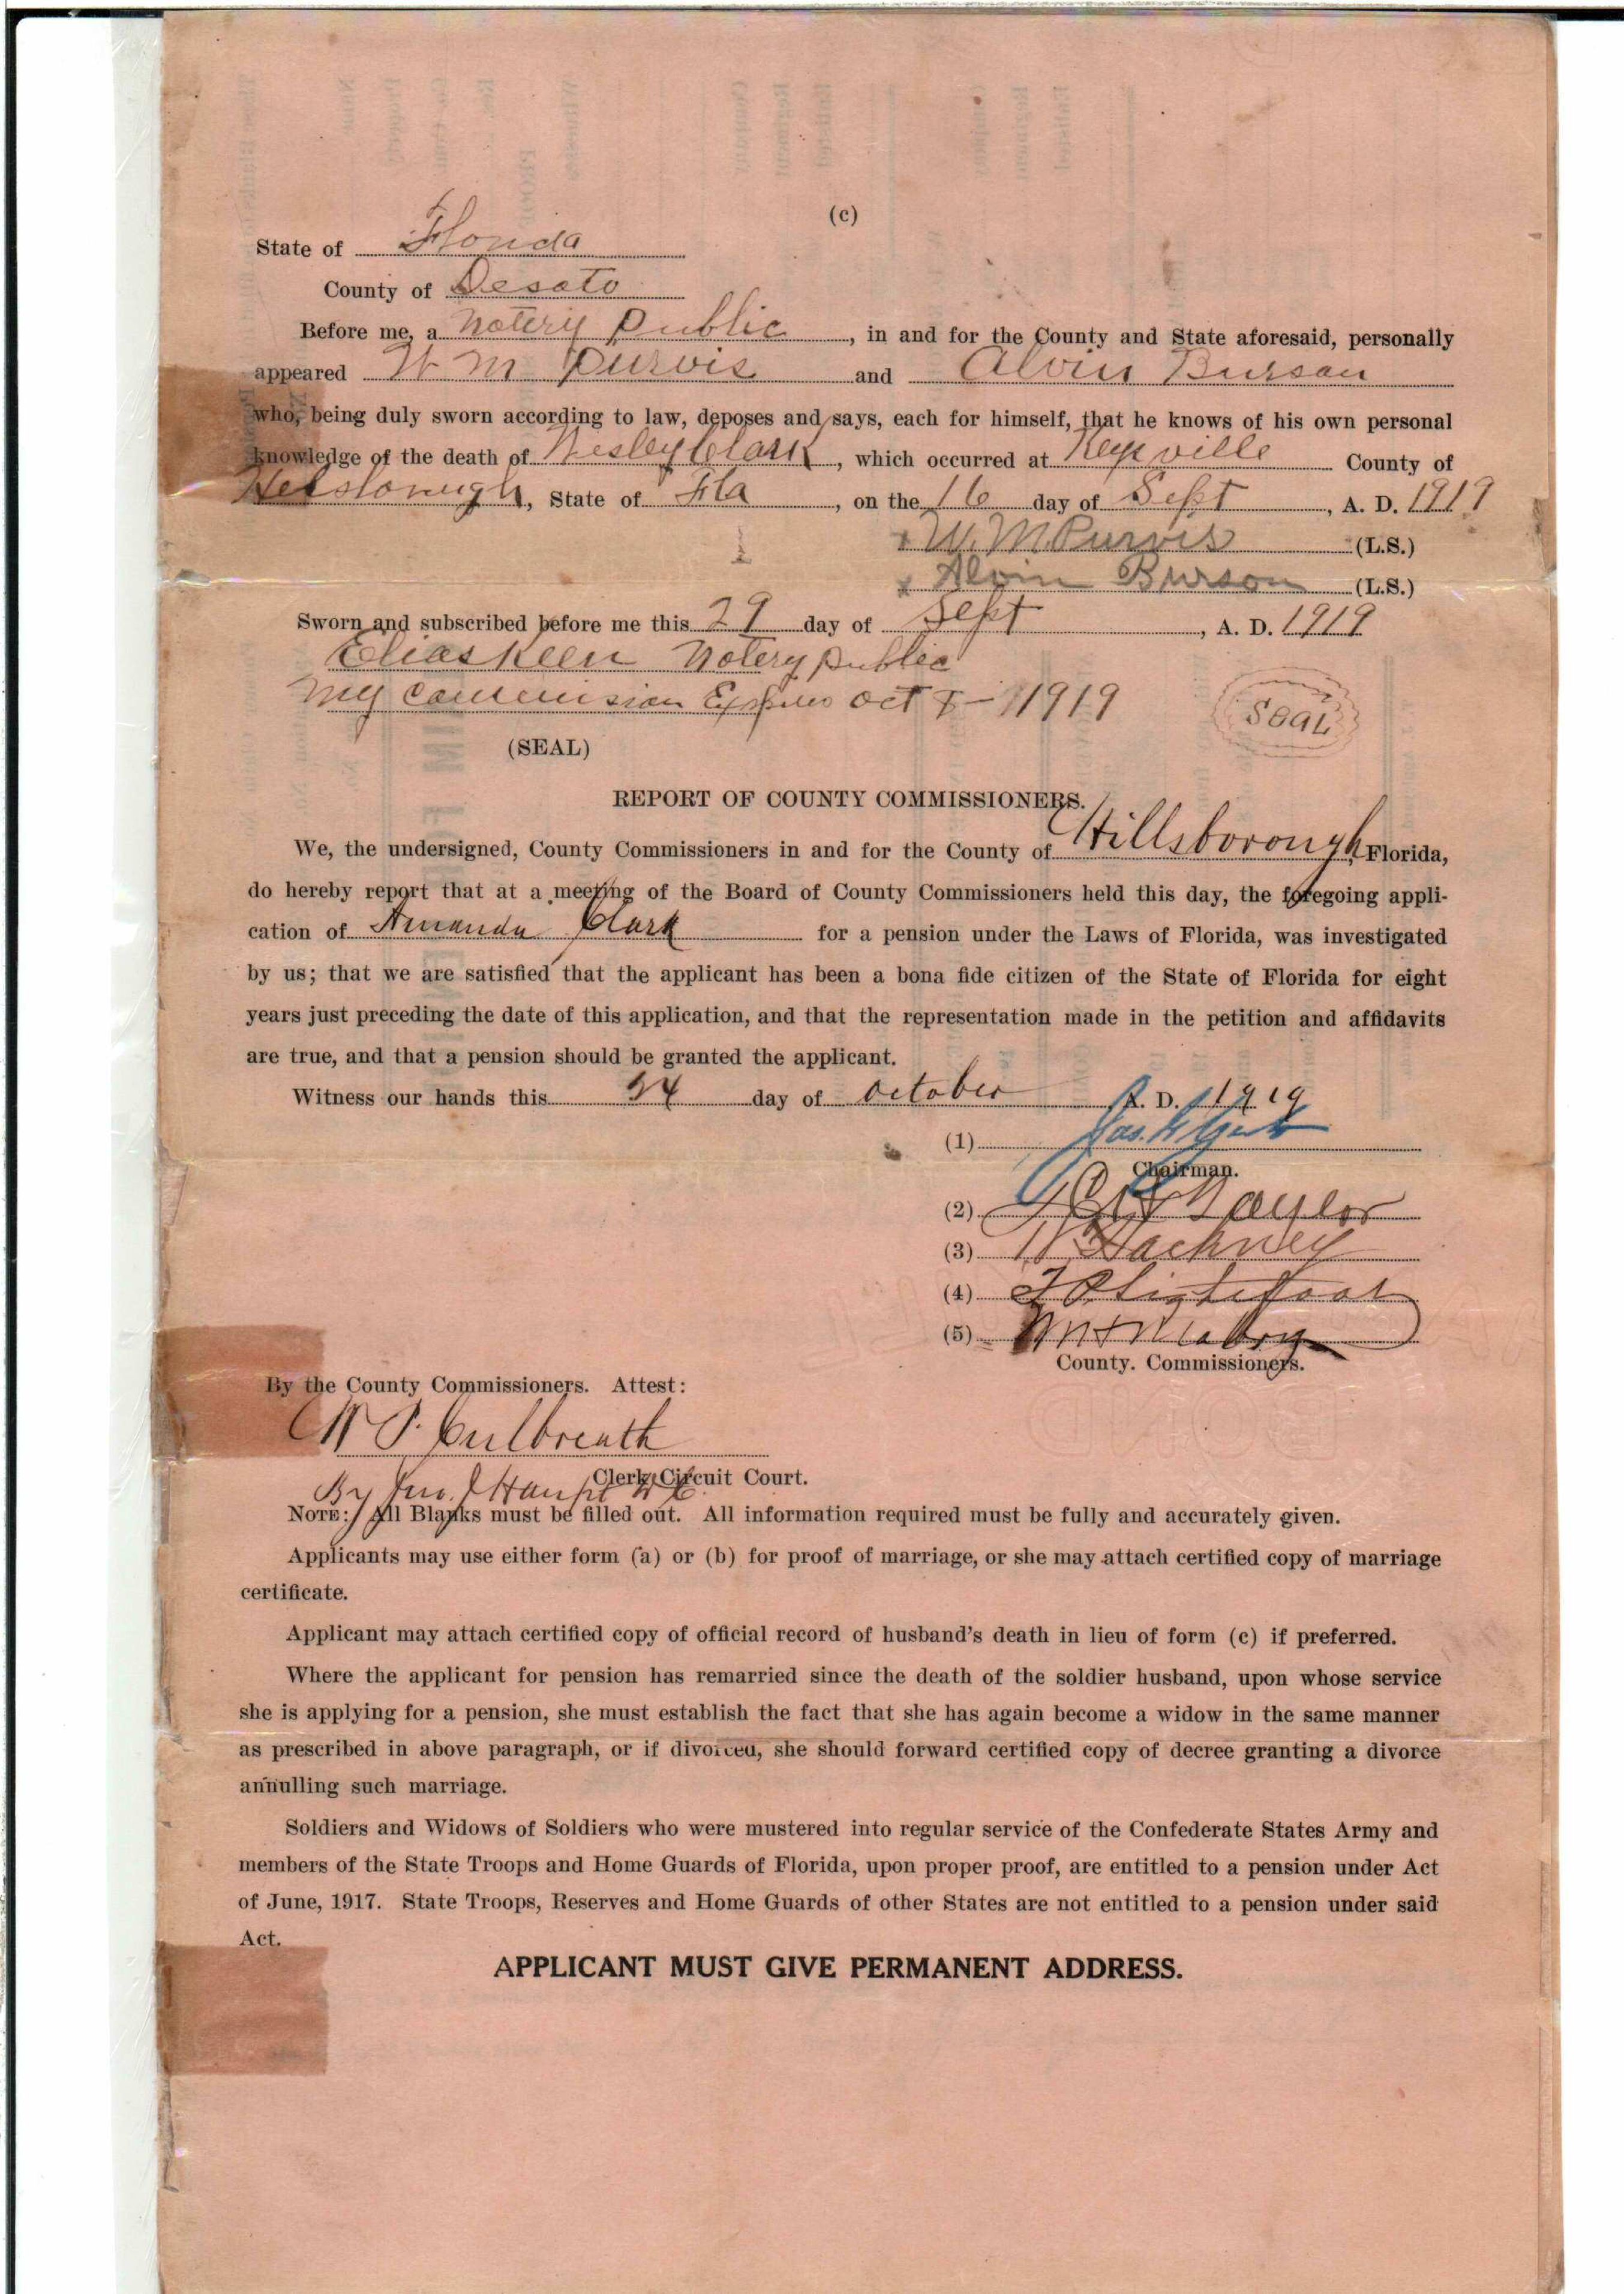 (c)
State of Florida
County of Desoto
Before me, a Notery Public, in and for the County and State aforesaid, personally
appeared W M Purvis and Alvin Burson
who, being duly sworn according to law, deposes and says, each for himself, that he knows of his own personal
knowledge of the death of Wesley Clark, which occurred at Keysville County of
State of Fla, on the 16 day of Sept, A. D. 1919
x W. M Purvis (L.S.)
x Alvin Burson (L.S.)
Sworn and subscribed before me this 29 day of Sept, A. D. 1919
Elias Keen Notery public
My Commission Expires Oct 8- 1919
Seal
(SEAL)
REPORT OF COUNTY COMMISSIONERS.
We, the undersigned, County Commissioners in and for the County of Hillsborough, Florida,
do hereby report that at a meeting of the Board of County Commissioners held this day, the foregoing appli-
cation of Amanda Clark for a pension under the Laws of Florida, was investigated
by us; that we are satisfied that the applicant has been a bona fide citizen of the State of Florida for eight
years just preceding the date of this application, and that the representation made in the petition and affidavits
are true, and that a pension should be granted the applicant.
Witness our hands this 24 day of October A. D. 1919
(1)
Chairman.
(2) Taylor
(3) Hackney
(4) Lightfoot
(5) Mabry
County. Commissioners.
By the County Commissioners. Attest:
W P. Culbreath
Clerk Circuit Court.
By Jno. D.C.
NOTE: All Blanks must be filled out. All information required must be fully and accurately given.
Applicants may use either form (a) or (b) for proof of marriage, or she may attach certified copy of marriage
certificate.
Applicant may attach certified copy of official record of husband's death in lieu of form (c) if preferred.
Where the applicant for pension has remarried since the death of the soldier husband, upon whose service
she is applying for a pension, she must establish the fact that she has again become a widow in the same manner
as prescribed in above paragraph, or if divorced, she should forward certified copy of decree granting a divorce
annulling such marriage.
Soldiers and Widows of Soldiers who were mustered into regular service of the Confederate States Army and
members of the State Troops and Home Guards of Florida, upon proper proof, are entitled to a pension under Act
of June, 1917. State Troops, Reserves and Home Guards of other States are not entitled to a pension under said
Act.
APPLICANT MUST GIVE PERMANENT ADDRESS.